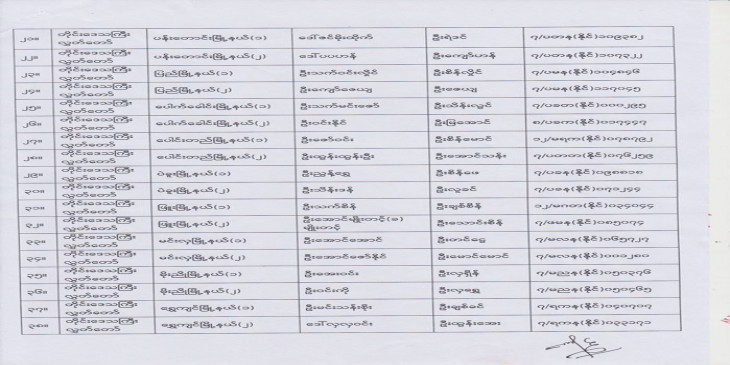 ၂၁။ တိုင်းဒေသကြီး လွှတ်တော် ပန်းတောင်းမြို့နယ်(၁) ဒေါ်ခင်မိုးထိုက် ဦးရဲဒင် ၇/ပတန(နိုင်)၁၀၉၃၈၂
၂၂။ တိုင်းဒေသကြီး လွှတ်တော် ပန်းတောင်းမြို့နယ်(၂) ဒေါ်ပပဟန် ဦးကျော်ဟန် ၇/ပတန(နိုင်)၁၀၇၃၂၂
၂၃။ တိုင်းဒေသကြီး လွှတ်တော် ပြည်မြို့နယ်(၁) ဦးသက်ဝင်းလှိုင် ဦးစိန်လှိုင် ၇/ပမန(နိုင်)၁၀၄၈၄၆
၂၄။ တိုင်းဒေသကြီး လွှတ်တော် ပြည်မြို့နယ်(၂) ဦးကျော်ဇေယျ ဦးဇေယျ ၇/ပမန(နိုင်)၁၁၇၀၄၅
၂၅။ တိုင်းဒေသကြီး လွှတ်တော် ပေါက်ခေါင်းမြို့နယ်(၁) ဦးသက်မင်းဇော် ဦးထိန်လွင် ၇/ပခတ(နိုင်)၀၀၀၂၉၅
၂၆။ တိုင်းဒေသကြီး လွှတ်တော် ပေါက်ခေါင်းမြို့နယ်(၂) ဦးဝင်းနိုင် ဦးမြအောင် ၈/ပခက(နိုင်)၀၁၇၄၄၇
၂၇။ တိုင်းဒေသကြီး လွှတ်တော် ပေါင်းတည်မြို့နယ်(၁) ဦးဇော်ဝင်း ဦးစိန်မောင် ၁၂/မရက(နိုင်)၀၇၈၇၉၂
၂၈။ တိုင်းဒေသကြီး လွှတ်တော် ပေါင်းတည်မြို့နယ်(၂) ဦးထွန်းထွန်းဦး ဦးအောင်သန်း ၇/ပတတ(နိုင်)၀၇၆၂၅၉
၂၉။ တိုင်းဒေသကြီး လွှတ်တော် ပဲခူးမြို့နယ်(၁) ဦးညွှန့်ရွှေ ဦးစိန်ဖေ ၇/ပခန(နိုင်)၀၉၈၈၁၈
၃၀။ တိုင်းဒေသကြီး လွှတ်တော် ပဲခူးမြို့နယ်(၂) ဦးသိန်းဒန် ဦးလှခင် ၇/ပခန(နိုင်)၀၇၀၂၄၄
၃၁။ တိုင်းဒေသကြီး လွှတ်တော် ဖြူးမြို့နယ်(၁) ဦးသက်စိန် ဦးချစ်စိန် ၁၂/မဂတ(နိုင်)၀၃၄၀၄၄
၃၂။ တိုင်းဒေသကြီး လွှတ်တော် ဖြူးမြို့နယ်(၂) ဦးအောင်မျိုးတင့်(ခ) မျိုးတင့် ဦးသောင်းစိန် ၇/ဖမန(နိုင်)၀၈၅၀၇၄
၃၃။ တိုင်းဒေသကြီး လွှတ်တော် မင်းလှမြို့နယ်(၁) ဦးအောင်အောင် ဦးတင်ငွေ ၇/မလန(နိုင်)၀၆၅၇၂၇
၃၄။ တိုင်းဒေသကြီး လွှတ်တော် မင်းလှမြို့နယ်(၂) ဦးအောင်ဇော်နိုင် ဦးမောင်မောင် ၇/မလန(နိုင်)၀၀၁၂၈၀
၃၅။ တိုင်းဒေသကြီး လွှတ်တော် မိုးညိုမြို့နယ်(၁) ဦးအေးဝင်း ဦးလှရှိန် ၇/မညန(နိုင်)၀၅၀၃၇၆
၃၆။ တိုင်းဒေသကြီး လွှတ်တော် မိုးညိုမြို့နယ်(၂) ဦးဝင်းကို ဦးလှရွှေ ၇/မညန(နိုင်)၀၅၀၄၆၅
၃၇။ တိုင်းဒေသကြီး လွှတ်တော် ရွှေကျင်မြို့နယ်(၁) ဦးမင်းသန်းစိုး ဦးချစ်ခင် ၇/ရကန(နိုင်)၀၄၀၇၀၇
၃၈။ တိုင်းဒေသကြီး လွှတ်တော် ရွှေကျင်မြို့နယ်(၂) ဒေါ်လှလှဝင်း ဦးထွန်းအေး ၇/ရကန(နိုင်)၀၃၃၁၇၁